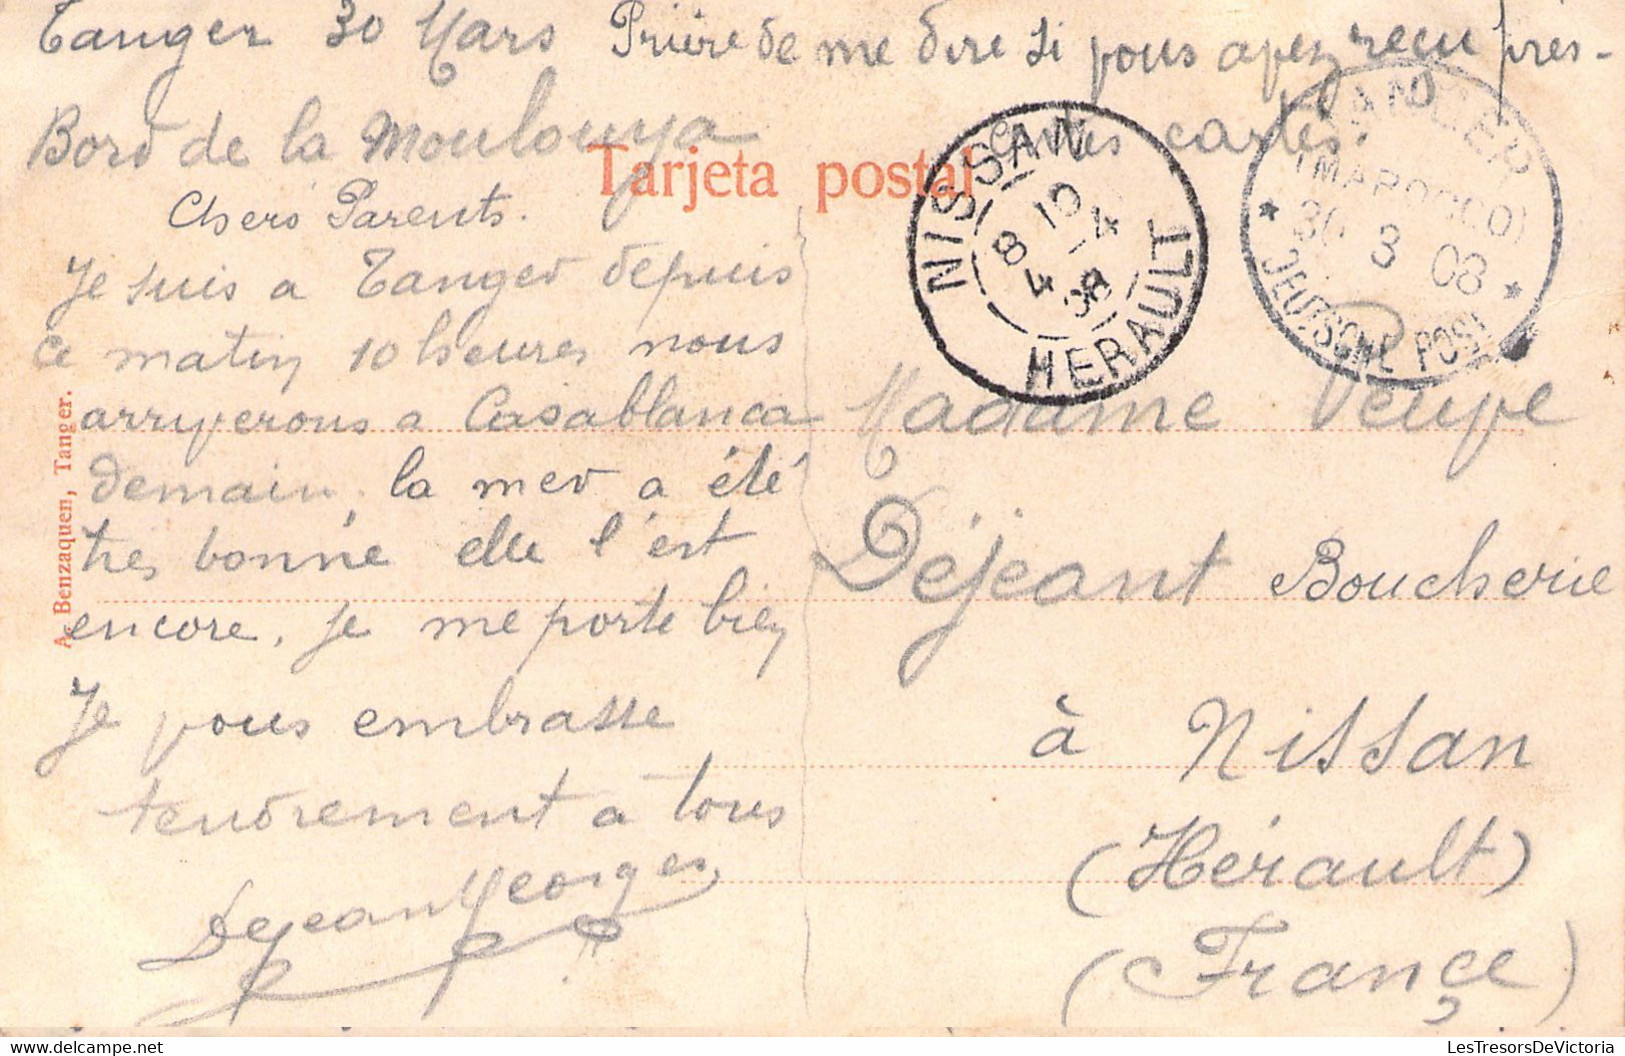 Tanger 30 Mars Prière de me dire si vous avez reçu pres-
centes cartes.
Bord de la Moulouya
Tarjeta postal
Chers Parents.
Je suis a Tanger depuis
ce matin 10 heures nous
arriverons a Casablanca
demain, la mer a été
tres bonne elle l'est
encore, je me porte bien
Je vous embrasse
tendrement a tous
Dejean Georges
A. Benzaquen, Tanger.
NISSAN
8 10
4 - 4
08
HERAULT
TANGER
(MAROCCO)
* 30 3 08 *
DEUTSCHE POST
Madame Veuve
Déjeant Boucherie
à Nissan
(Hérault)
(France)
LesTresorsDeVictoria